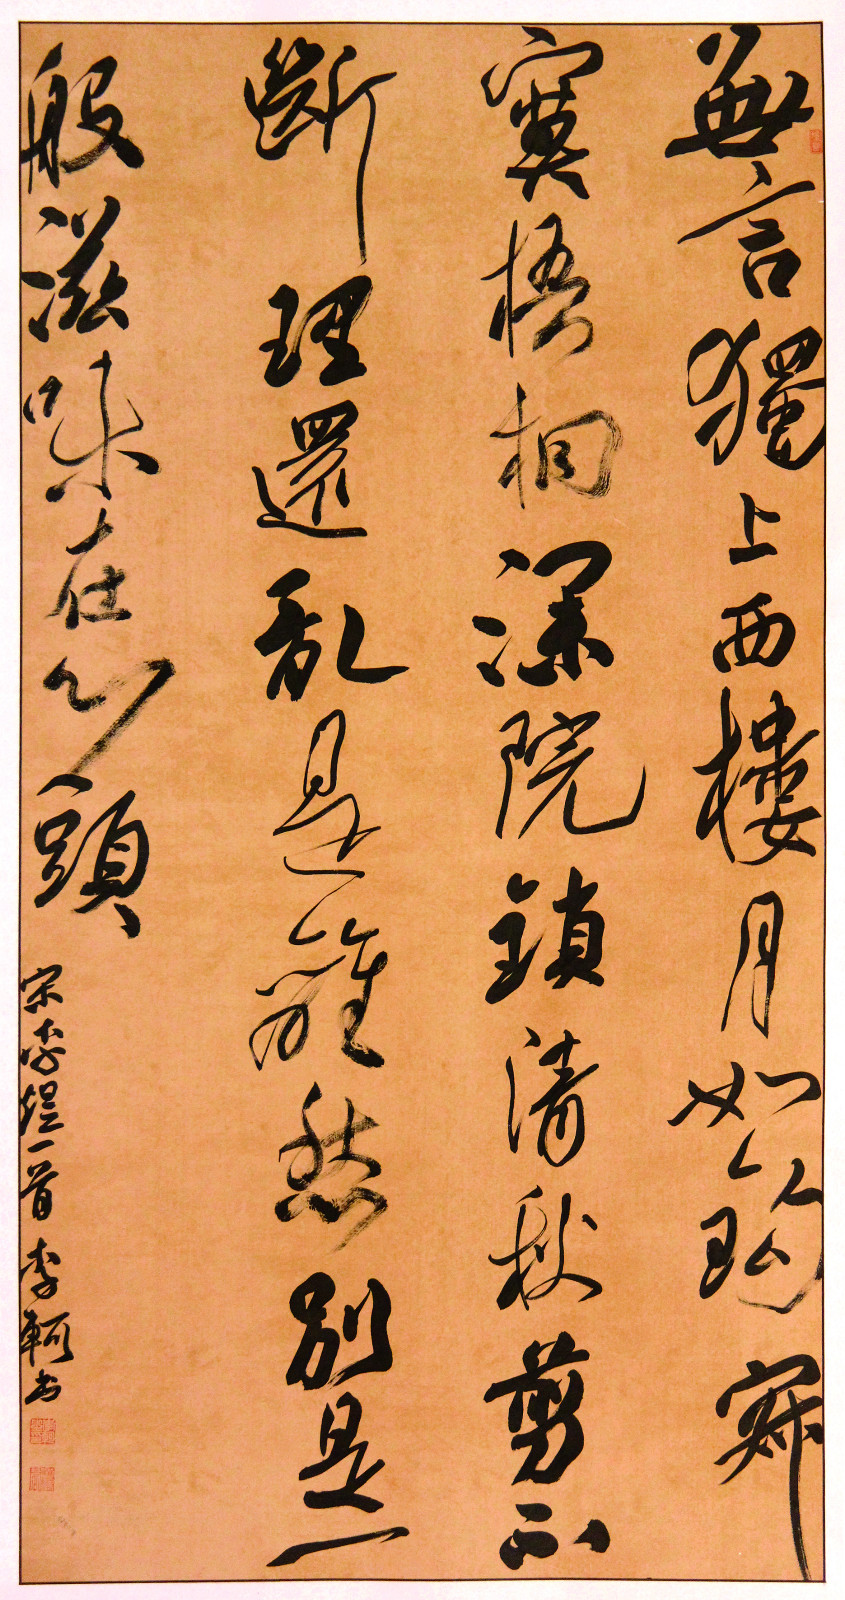 無言獨上西樓月如鈎寂
寞梧桐深院鎖清秋剪不
斷理還乱是離愁別是一
般滋味在心頭
宋李煜一首 李軻书